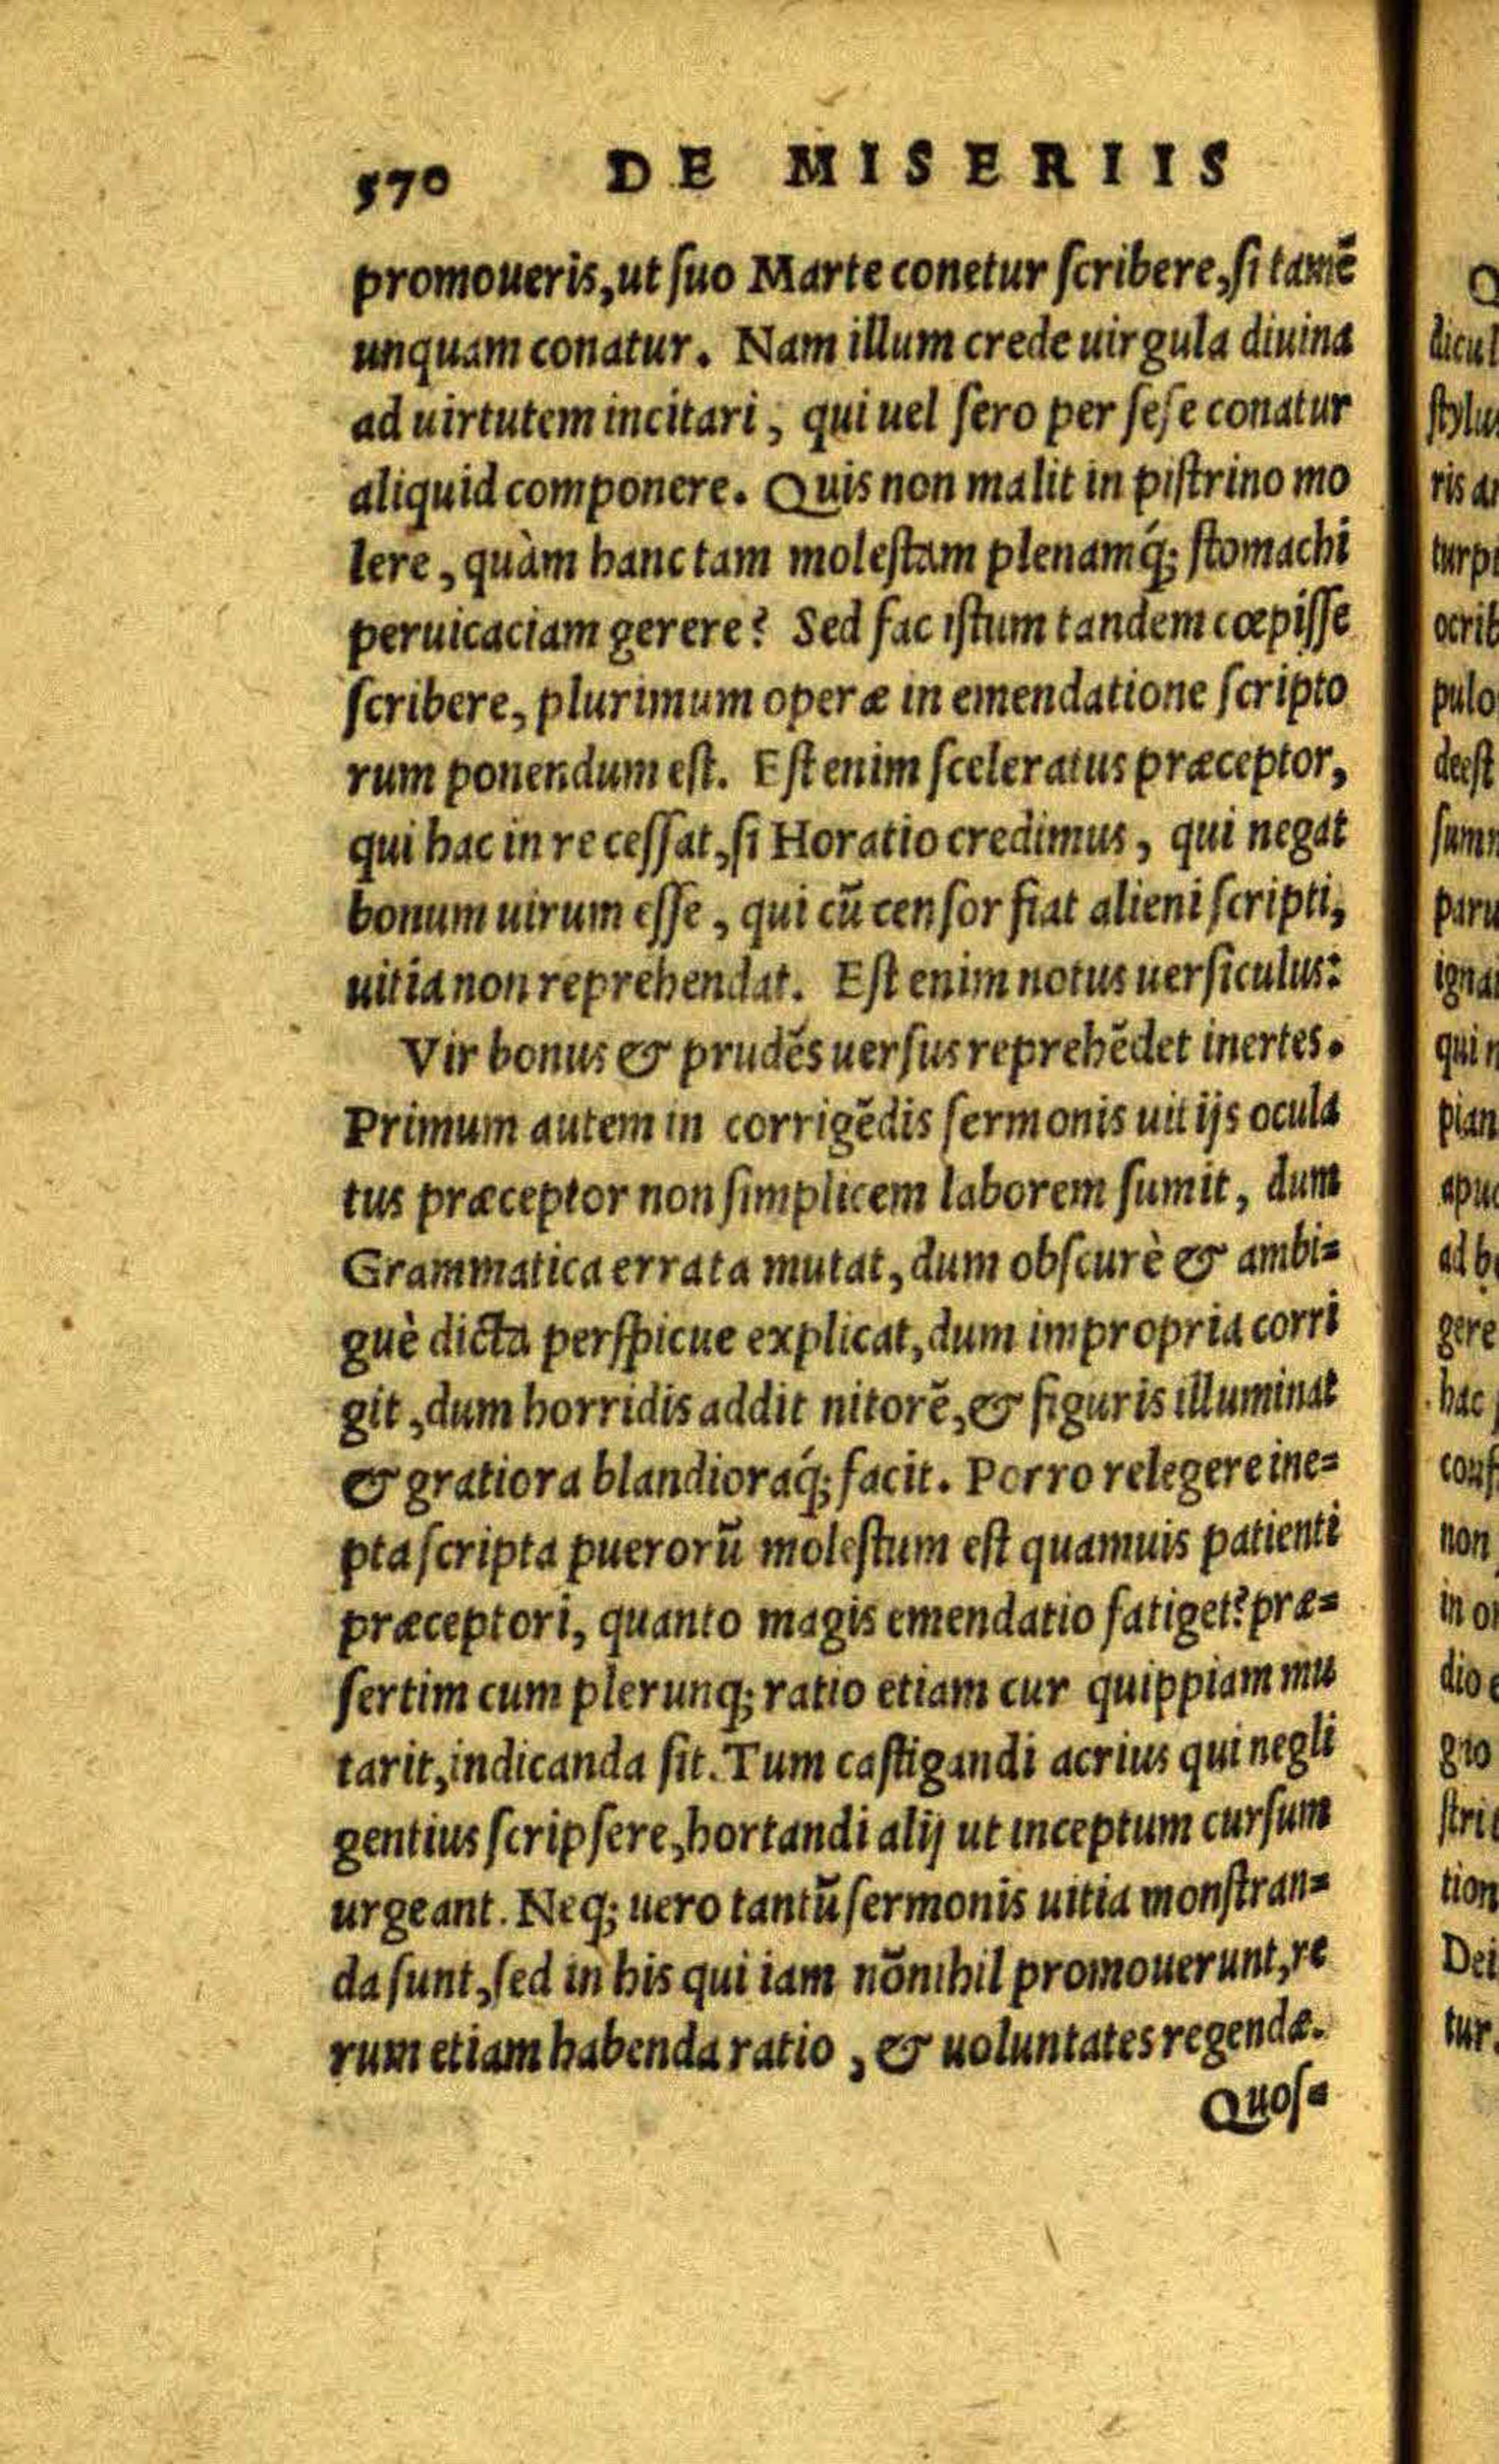 570 DE MISERIIS
promoueris, ut suo Marte conetur scribere, si tamē
unquam conatur. Nam illum crede uirgula diuina
ad uirtutem incitari, qui uel sero per sese conatur
aliquid componere. Quis non malit in pistrino mo
lere, quàm hanc tam molestam plenamq́; stomachi
peruicaciam gerere? Sed fac istum tandem cœpisse
scribere, plurimum operæ in emendatione scripto
rum ponendum est. Est enim sceleratus præceptor,
qui hac in re cessat, si Horatio credimus, qui negat
bonum uirum esse, qui cū censor fiat alieni scripti,
uitia non reprehendat. Est enim notus uersiculus:
Vir bonus & prudēs uersus reprehēdet inertes.
Primum autem in corrigēdis sermonis uitijs ocula
tus præceptor non simplicem laborem sumit, dum
Grammatica errata mutat, dum obscurè & ambi=
guè dicta perspicue explicat, dum impropria corri
git, dum horridis addit nitorē, & figuris illuminat
& gratiora blandioraq́; facit. Porro relegere ine=
pta scripta puerorū molestum est quamuis patienti
præceptori, quanto magis emendatio fatiget? præ=
sertim cum plerunq; ratio etiam cur quippiam mu
tarit, indicanda sit. Tum castigandi acrius qui negli
gentius scripsere, hortandi alij ut inceptum cursum
urgeant. Neq; uero tantū sermonis uitia monstran=
da sunt, sed in his qui iam nōnihil promouerunt, re
rum etiam habenda ratio, & uoluntates regendæ.
Quos=